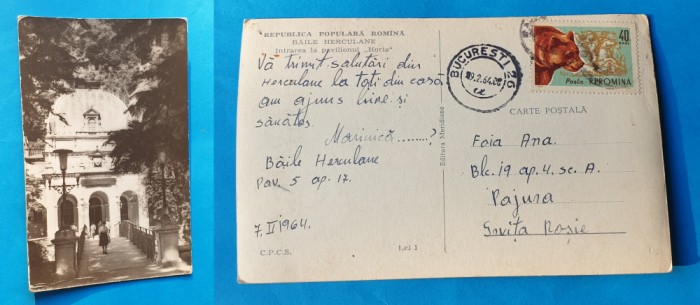 REPUBLICA POPULARĂ ROMÎNĂ
BĂILE HERCULANE
Intrarea la pavilionul „Horia"
Vă trimit salutări din
Herculane la toți din casă
am ajuns bine și
sănătos.
Marinică........?
Băile Herculane
Pav. 5 ap. 17.
7.II 1964.
C.P.C.S.
Lei 1
Editura Meridiane
BUCUREȘTI 26
9.2.64.
40
BANI
Posta R.P.ROMINA
CARTE POȘTALĂ
Foia Ana.
Blc. 19 ap. 4. sc. A.
Pajura
Grivița Roșie